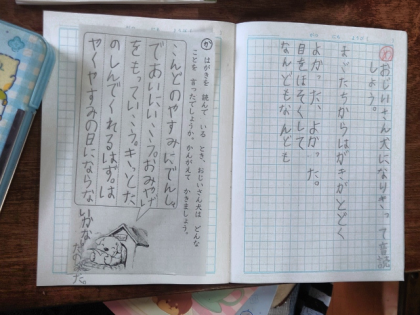 おじいさん犬になりきって音読
しよう。
まごたちからはがきがとどく
よかった、よかった。
目をほそくして
なんどもなんども
か はがきを 読んで いる とき、おじいさん犬は どんな
ことを 言ったでしょうか。かんがえて かきましょう。
こんどのやすみにでんしゃ
であいにいこう。おみやげ
をもっていこう。きっとた
のしんでくれるはず。は
やくやすみの日にならな
いかな。